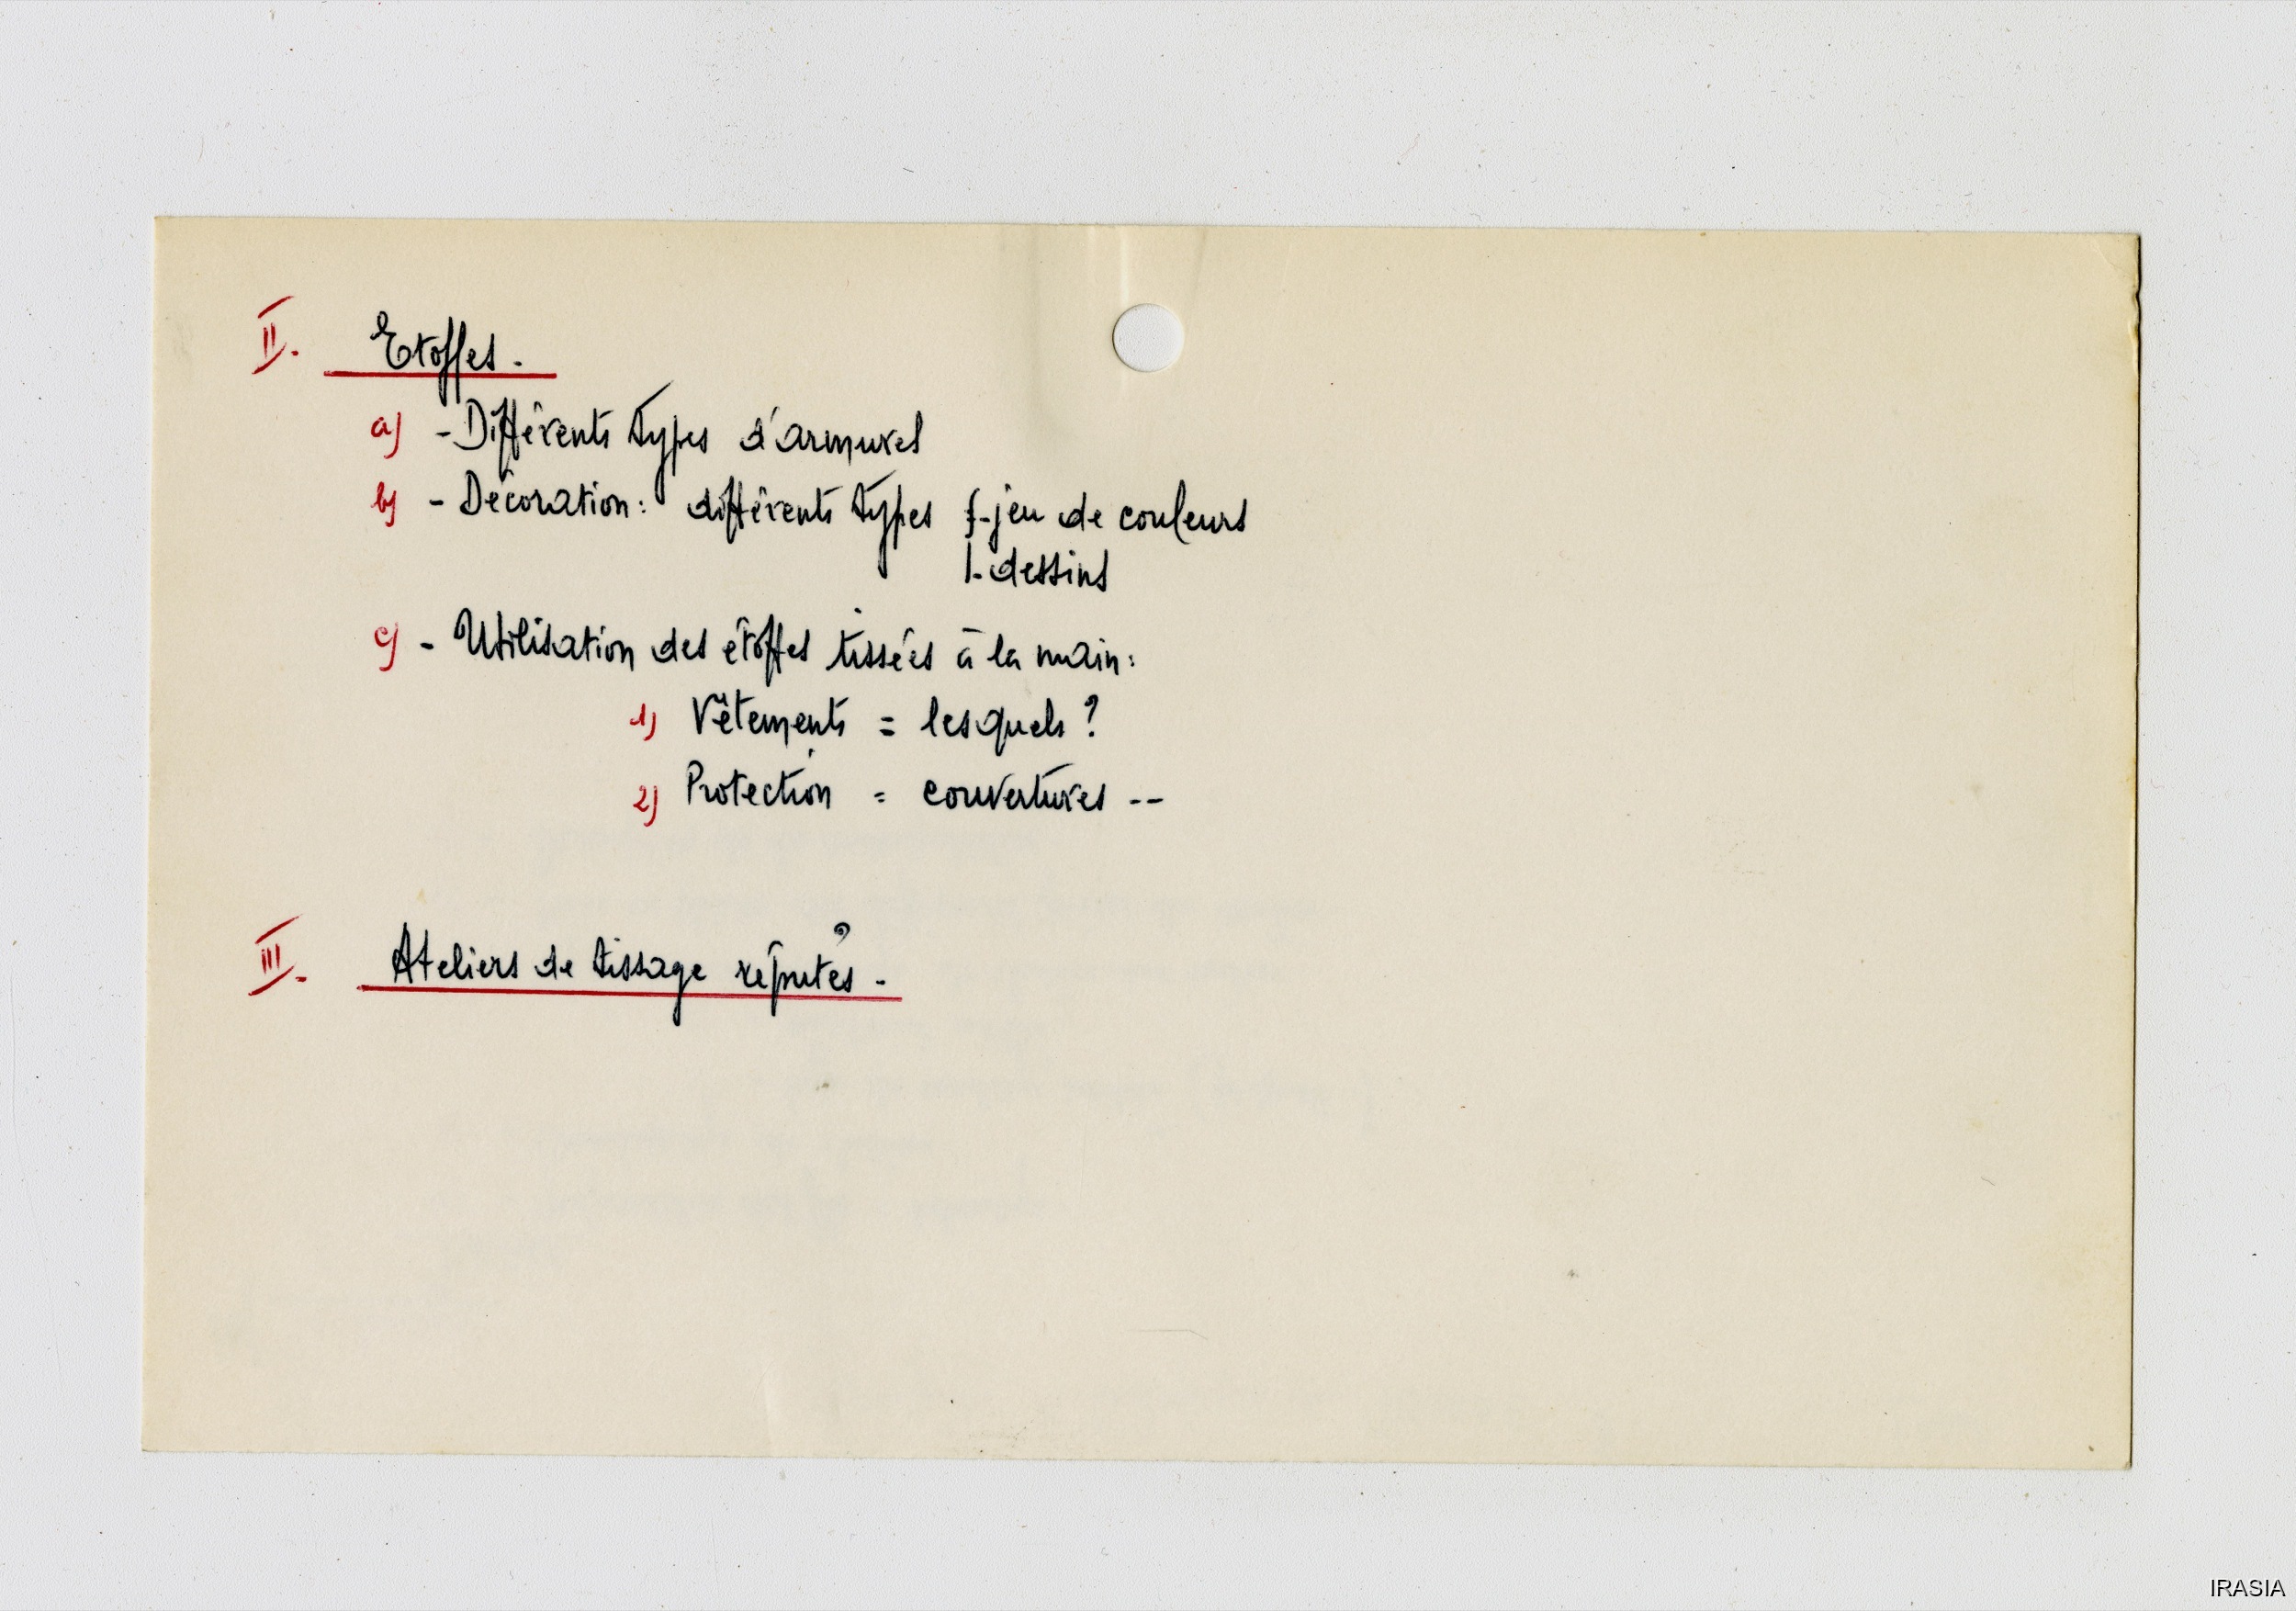 II. Etoffes.
a) - Différents types d'armures
b) - Décoration: différents types {-jeu de couleurs
|- dessins
c) - Utilisation des étoffes tissées à la main:
1) Vêtements = lesquels ?
2) Protection = couvertures --
III. Ateliers de tissage réputés -
IRASIA